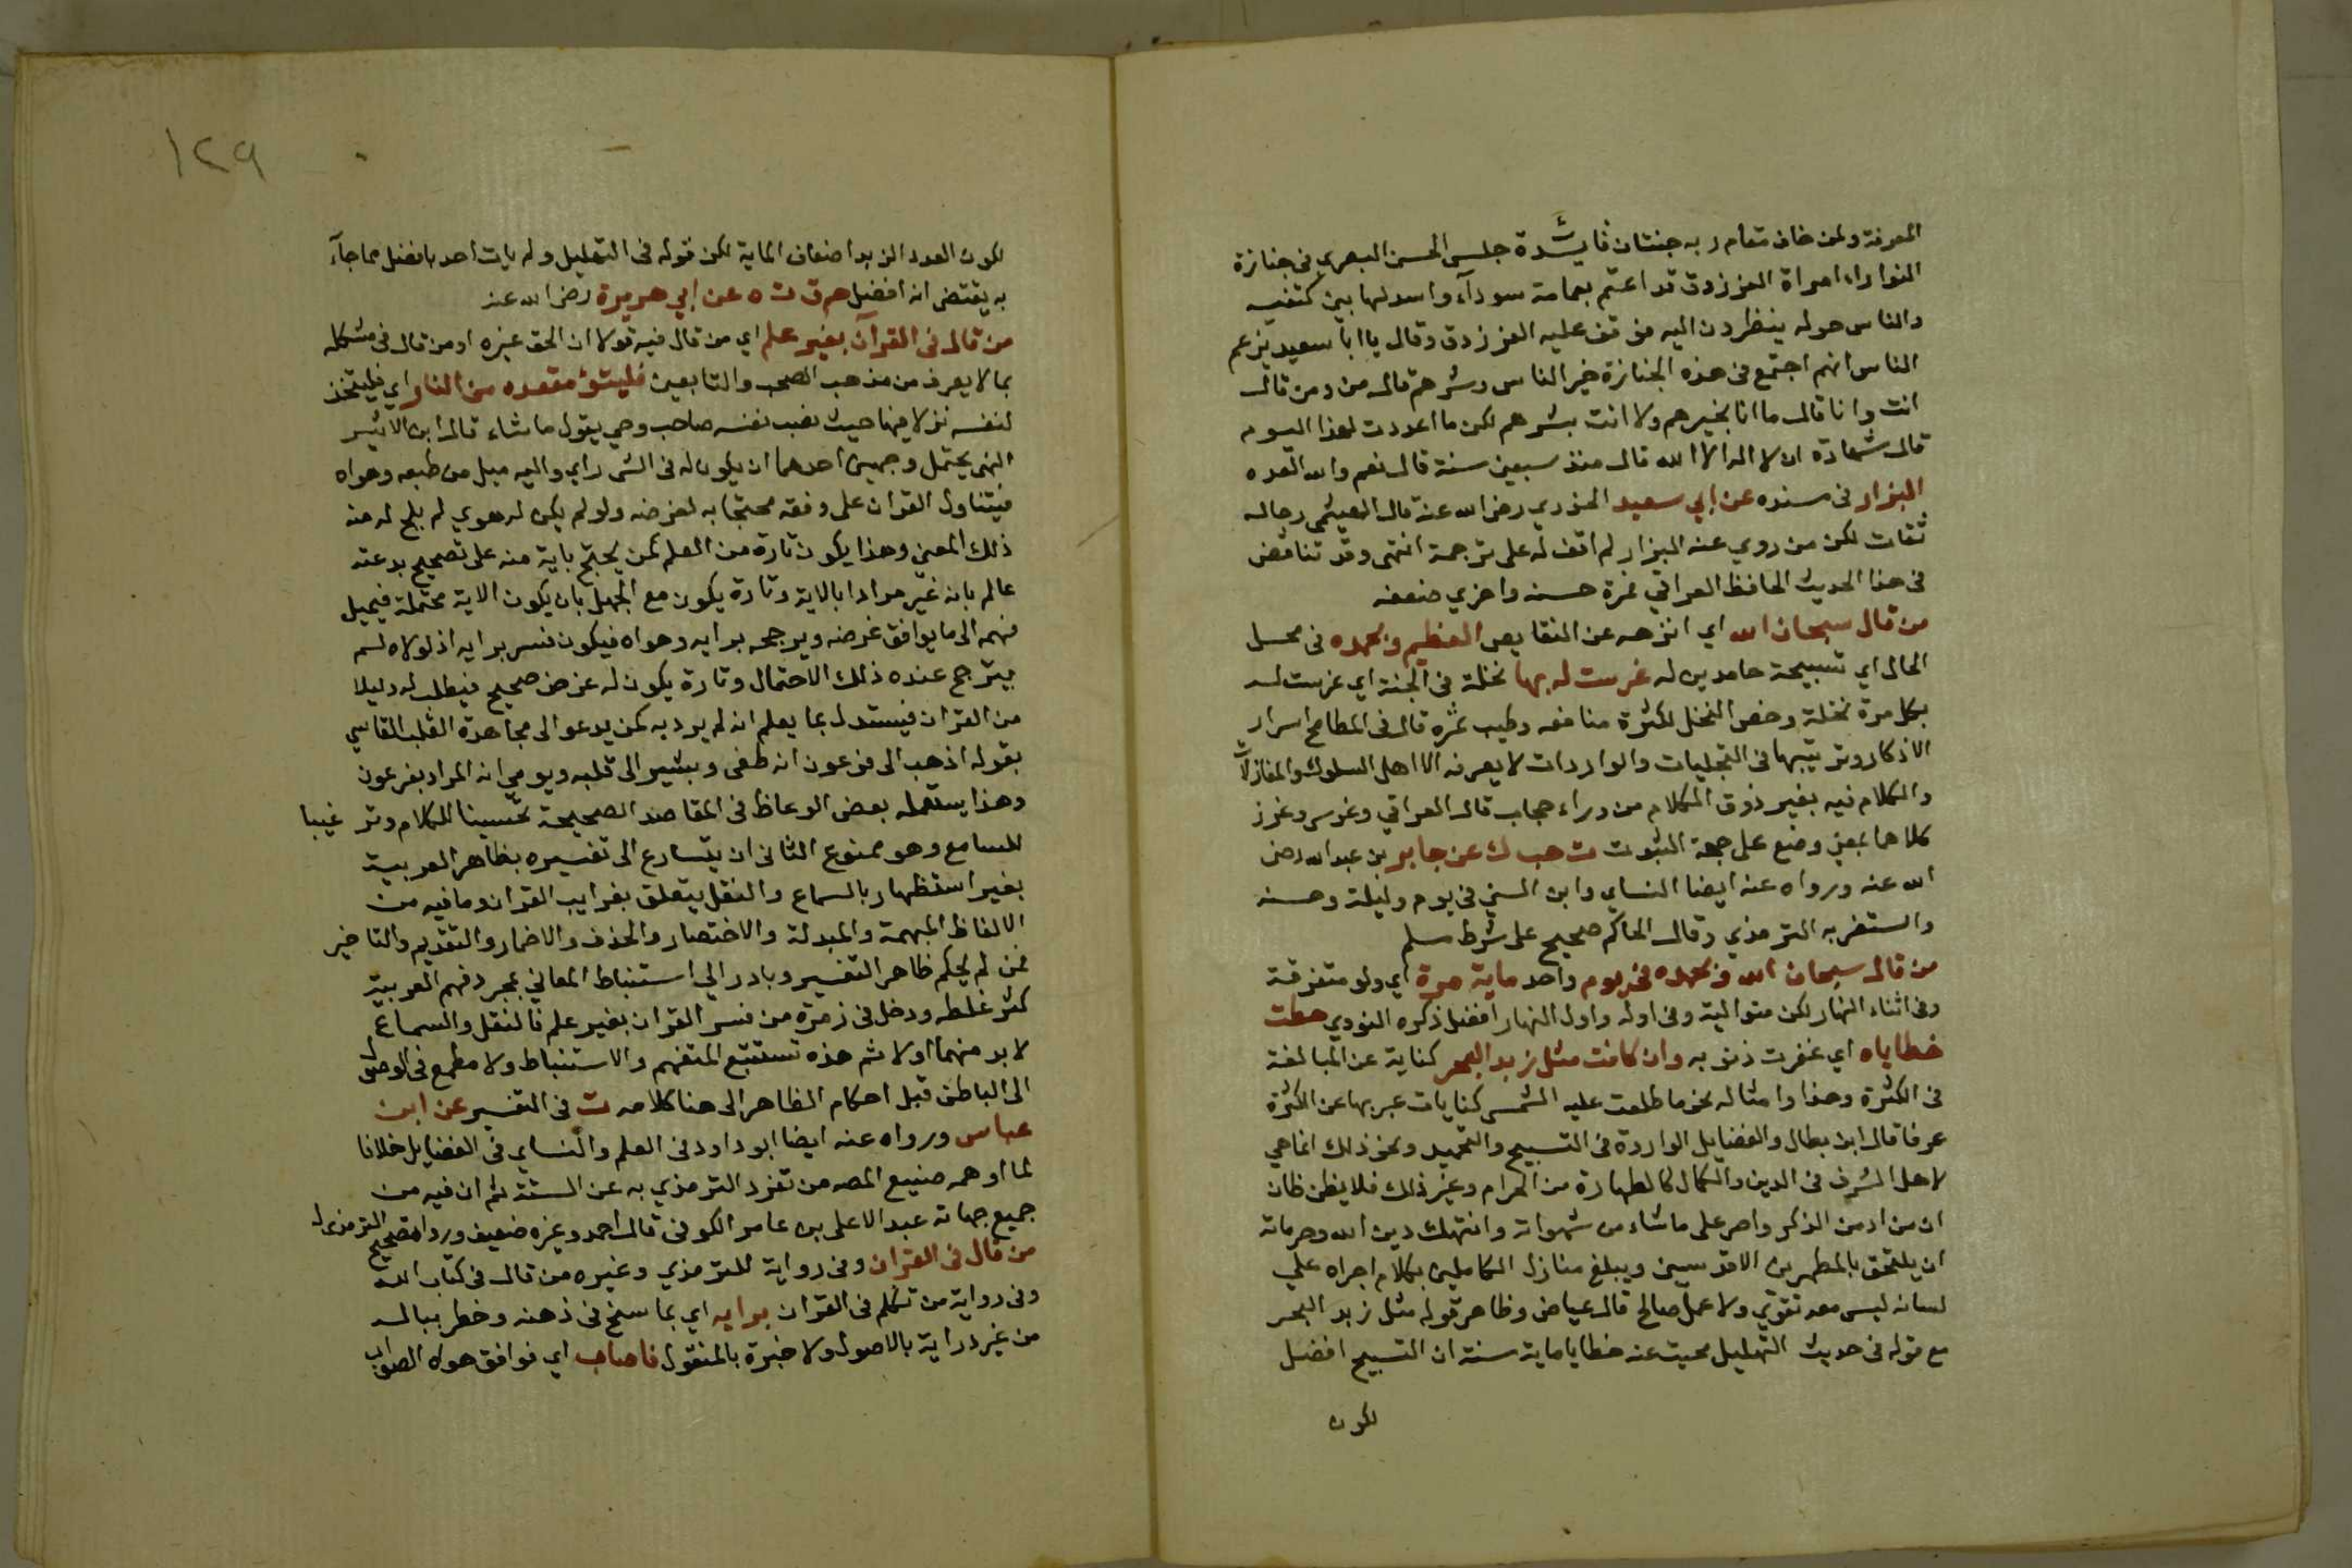 المعرفة ولمن خاف مقام ربه جنتان فائدة جلس الحسن البصري في جنازة
النوار امراة الفرزدق قد اعتم بعمامة سودآء واسدلها بين كتفيه
والناس حوله ينظرون اليه فوقف عليه الفرزدق وقال يا ابا سعيد يزعم
الناس انهم اجتمع في هذه الجنازة خير الناس وشرهم قال من ومن قال
انت وانا قال ما انا بخيرهم ولا انت بشرهم لكن ما اعددت لهذا اليوم
قال شهادة ان لا اله الا الله قال منذ سبعين سنة قال نعم والله العده
البزار في سنده عن ابي سعيد الخدري رضي الله عنه قال الهيثمي رجاله
ثقات لكن من روي عنه البزار لم اقف له على ترجمة انتهى وقد تناقض
في هذا الحديث الحافظ العراقي فمرة حسنه واخري ضعفه
من قال سبحان الله اي انزهه عن النقايص العظيم وبحمده في محل
الحال اي نسبحه حامدين له غرست له بها نخلة في الجنة اي غرست له
بكل مرة نخلة وخص النخل لكثرة منافعه وطيب ثمره قال في المطامح اسرار
الاذكار وترتيبها في التجليات والواردات لا يعرفه الا اهل السلوك والمنازلات
والكلام فيه بغير ذوق الكلام من وراء حجاب قال العراقي وغرس وغرز
كلاهما بمعني وضع على جهة الثبوت ت حب ك عن جابر بن عبد الله رضي
الله عنه ورواه عنه ايضا النساي وابن السني في يوم وليلة وحسنه
واستغربه الترمذي وقال الحاكم صحيح على شرط مسلم
من قال سبحان الله وبحمده في يوم واحد ماية مرة اي ولو متفرقة
وفي اثناء النهار لكن متوالية وفي اوله واول النهار افضل ذكره النووي حطت
خطاياه اي غفرت ذنوبه وان كانت مثل زبد البحر كناية عن المبالغة
في الكثرة وهذا وامثاله نحو ما طلعت عليه الشمس كنايات عبر بها عن الكثرة
عرفا قال ابن بطال والفضايل الواردة في التسبيح والتحميد ونحو ذلك انما هي
لاهل الشرف في الدين والكمال كالطهارة من الحرام وغير ذلك فلا يظن ظان
ان من ادمن الذكر واصر على ما شاء من شهواته وانتهك دين الله وحرماته
ان يلتحق بالمطهرين الاقدسين ويبلغ منازل الكاملين بكلام اجراه علي
لسانه ليس معه تقوي ولا عمل صالح قال عياض وظاهر قوله مثل زبد البحر
مع قوله في حديث التهليل محيت عنه خطايا ماية سنة ان التسبيح افضل
لكون
١٢٩
لكون العدد الزبد اضعاف الماية لكن قوله في التهليل ولم يات احد بافضل مما جآء
به يقتضي انه افضل حم ق ت ه عن ابي هريرة رضي الله عنه
من قال في القرآن بغير علم اي من قال فيه قولا ان الحق غيره او من قال في مشكله
بما لا يعرف من مذهب الصحب والتابعين فليتبؤ مقعده من النار اي فليتخذ
لنفسه نزلا فيها حيث نصب نفسه صاحب وحي يقول ما شاء قال ابن الاثير
النهي يحتمل وجهين احدهما ان يكون له في الشي راي واليه ميل من طبعه وهواه
فيتناول القران على وفقه محتجا به لغرضه ولو لم يكن له هوي لم يلح له منه
ذلك المعني وهذا يكون تارة من العلم كمن يحتج باية منه على تصحيح بدعته
عالم بانه غير مراد ابالاية وتارة يكون مع الجهل بان يكون الاية محتملة فيميل
فهمه الى ما يوافق غرضه ويرجحه برايه وهواه فيكون فسر برايه اذ لولاه لم
يترجح عنده ذلك الاحتمال وتارة يكون له غرض صحيح فيطلب له دليلا
من القران فيستدل بما يعلم انه لم يرد به كمن يدعو الى مجاهدة القلب القاسي
بقوله اذهب الى فرعون انه طغى ويشير الى قلبه ويومي انه المراد بفرعون
وهذا يستعمله بعض الوعاظ في المقاصد الصحيحة تحسينا للكلام وترغيبا
للسامع وهو ممنوع الثاني ان يتسارع الى تفسيره بظاهر العربية
بغير استظهار بالسماع والنقل يتعلق بغرايب القران وما فيه من
الالفاظ المبهمة والمبدلة والاختصار والحذف والاضمار والتقديم والتاخير
فمن لم يحكم ظاهر التفسير وبادر الي استنباط المعاني بمجرد فهم العربية
كثر غلطه ودخل في زمرة من فسر القران بغير علم فالنقل والسماع
لا بد منهما اولا ثم هذه تستتبع التفهم والاستنباط ولا مطمع في الوصول
الى الباطن قبل احكام الظاهر الى هنا كلامه ت في التفسير عن ابن
عباس ورواه عنه ايضا ابو داود في العلم والنساي في الفضايل خلافا
لما اوهمه صنيع المصه من تفرد الترمذي به عن الستة ثم ان فيه من
جميع جهاته عبد الاعلى بن عامر الكوفي قال احمد وغيره ضعيف وردوا تصحيح الترمذي له
من قال في القران وفي رواية للترمذي وغيره من قال في كتاب الله
وفي رواية من تكلم في القران برايه اي بما سنح في ذهنه وخطر بباله
من غير دراية بالاصول ولا خبرة بالمنقول فاصاب اي فوافق هواه الصواب